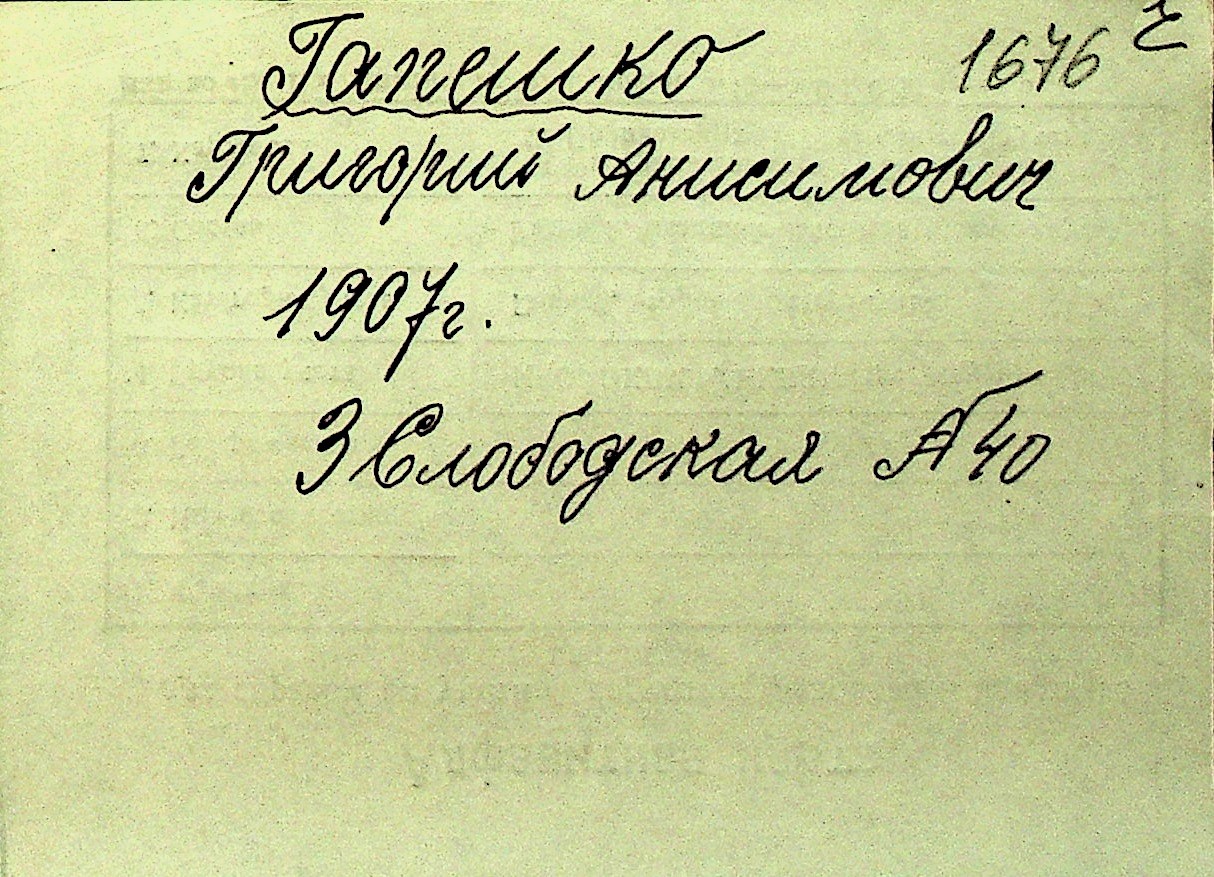 Гапешко 1676 г
Григорий Анисимович
1907г.
3 Слободская 40